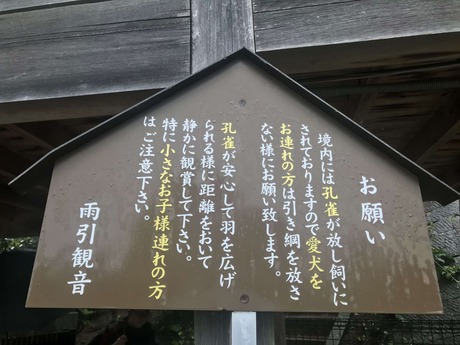 お願い
境内には孔雀が放し飼いに
されておりますので愛犬を
お連れの方は引き綱を放さ
ない様にお願い致します。
孔雀が安心して羽を広げ
られる様に距離をおいて
静かに観賞して下さい。
特に小さなお子様連れの方
はご注意下さい。
雨引観音